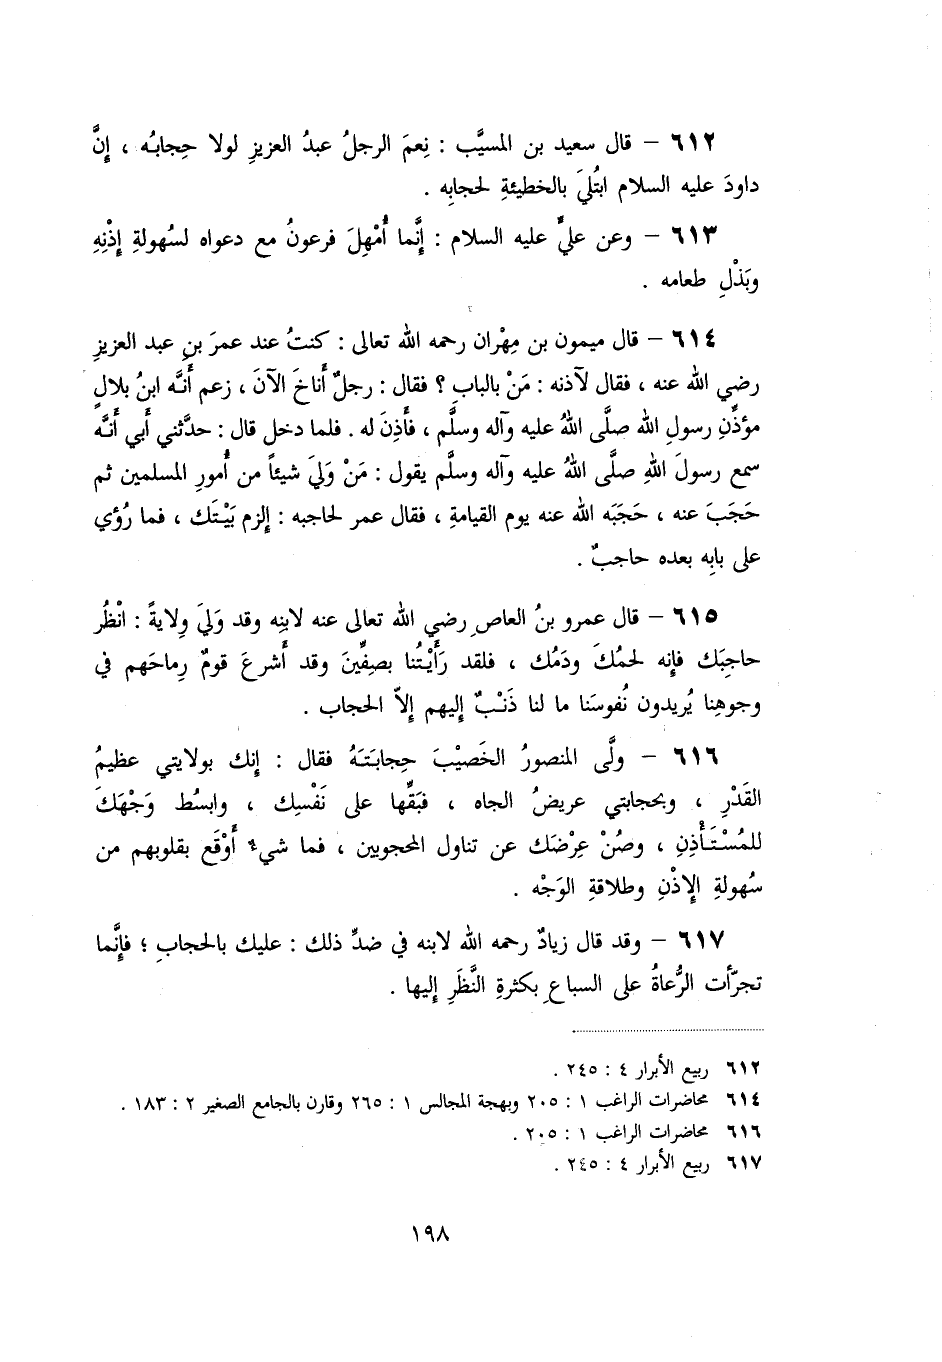 ٦١٢ – قال سعيد بن المسيَّب : نِعمَ الرجلُ عبدُ العزيزِ لولا حِجابُه ، إِنَّ
داودَ عليه السلام ابتُلِيَ بالخطيئةِ لحجابِه .
٦١٣ – وعن عليٍّ عليه السلام : إِنَّما أُمْهِلَ فرعونُ مع دعواه لسُهولةِ إِذْنِهِ
وبَذْلِ طعامه .
٦١٤ – قال ميمون بن مِهْران رحمه الله تعالى : كنتُ عند عمرَ بنِ عبد العزيزِ
رضي الله عنه ، فقال لآذنه : مَنْ بالبابِ ؟ فقال : رجلٌ أَناخَ الآنَ ، زعم أَنَّه ابنُ بلالٍ
مؤذِّنِ رسولِ الله صلَّى اللهُ عليه وآله وسلَّم ، فأَذِنَ له . فلما دخل قال : حدَّثني أَبي أَنَّه
سمع رسولَ اللهِ صلَّى اللهُ عليه وآله وسلَّم يقول : مَنْ وَلِيَ شيئاً من أُمورِ المسلمين ثم
حَجَبَ عنه ، حَجَبَه الله عنه يوم القيامةِ ، فقال عمر لحاجبه : إِلزم بَيْتَك ، فما رُؤي
على بابِه بعده حاجبٌ .
٦١٥ – قال عمرو بنُ العاصِ رضي الله تعالى عنه لابنِه وقد وَلِيَ وِلايةً : انْظُر
حاجِبَك فإنه لحمُكَ ودَمُك ، فلقد رَأَيْتُنا بصِفِّينَ وقد أَشرعَ قومٌ رِماحَهم في
وجوهِنا يُريدون نُفوسَنا ما لنا ذَنْبٌ إِليهم إِلاّ الحجاب .
٦١٦ – ولَّى المنصورُ الخَصيْبَ حِجابَتَهُ فقال : إِنك بولايتي عظيمُ
القَدْرِ ، وبحجابتي عريضُ الجاه ، فبَقِّها على نَفْسِك ، وابسُط وَجْهَكَ
للمُسْتَأْذِنِ ، وصُنْ عِرْضَك عن تناول المحجوبين ، فما شيءٌ أَوْقَع بقلوبهم من
سُهولةِ الإِذْنِ وطلاقةِ الوَجْه .
٦١٧ – وقد قال زيادٌ رحمه الله لابنه في ضدِّ ذلك : عليك بالحجابِ ؛ فإِنَّما
تجرّأت الرُّعاةُ على السباعِ بكثرةِ النَّظَرِ إِليها .
٦١٢ ربيع الأبرار ٤ : ٢٤٥ .
٦١٤ محاضرات الراغب ١ : ٢٠٥ وبهجة المجالس ١ : ٢٦٥ وقارن بالجامع الصغير ٢ : ١٨٣ .
٦١٦ محاضرات الراغب ١ : ٢٠٥ .
٦١٧ ربيع الأبرار ٤ : ٢٤٥ .
١٩٨